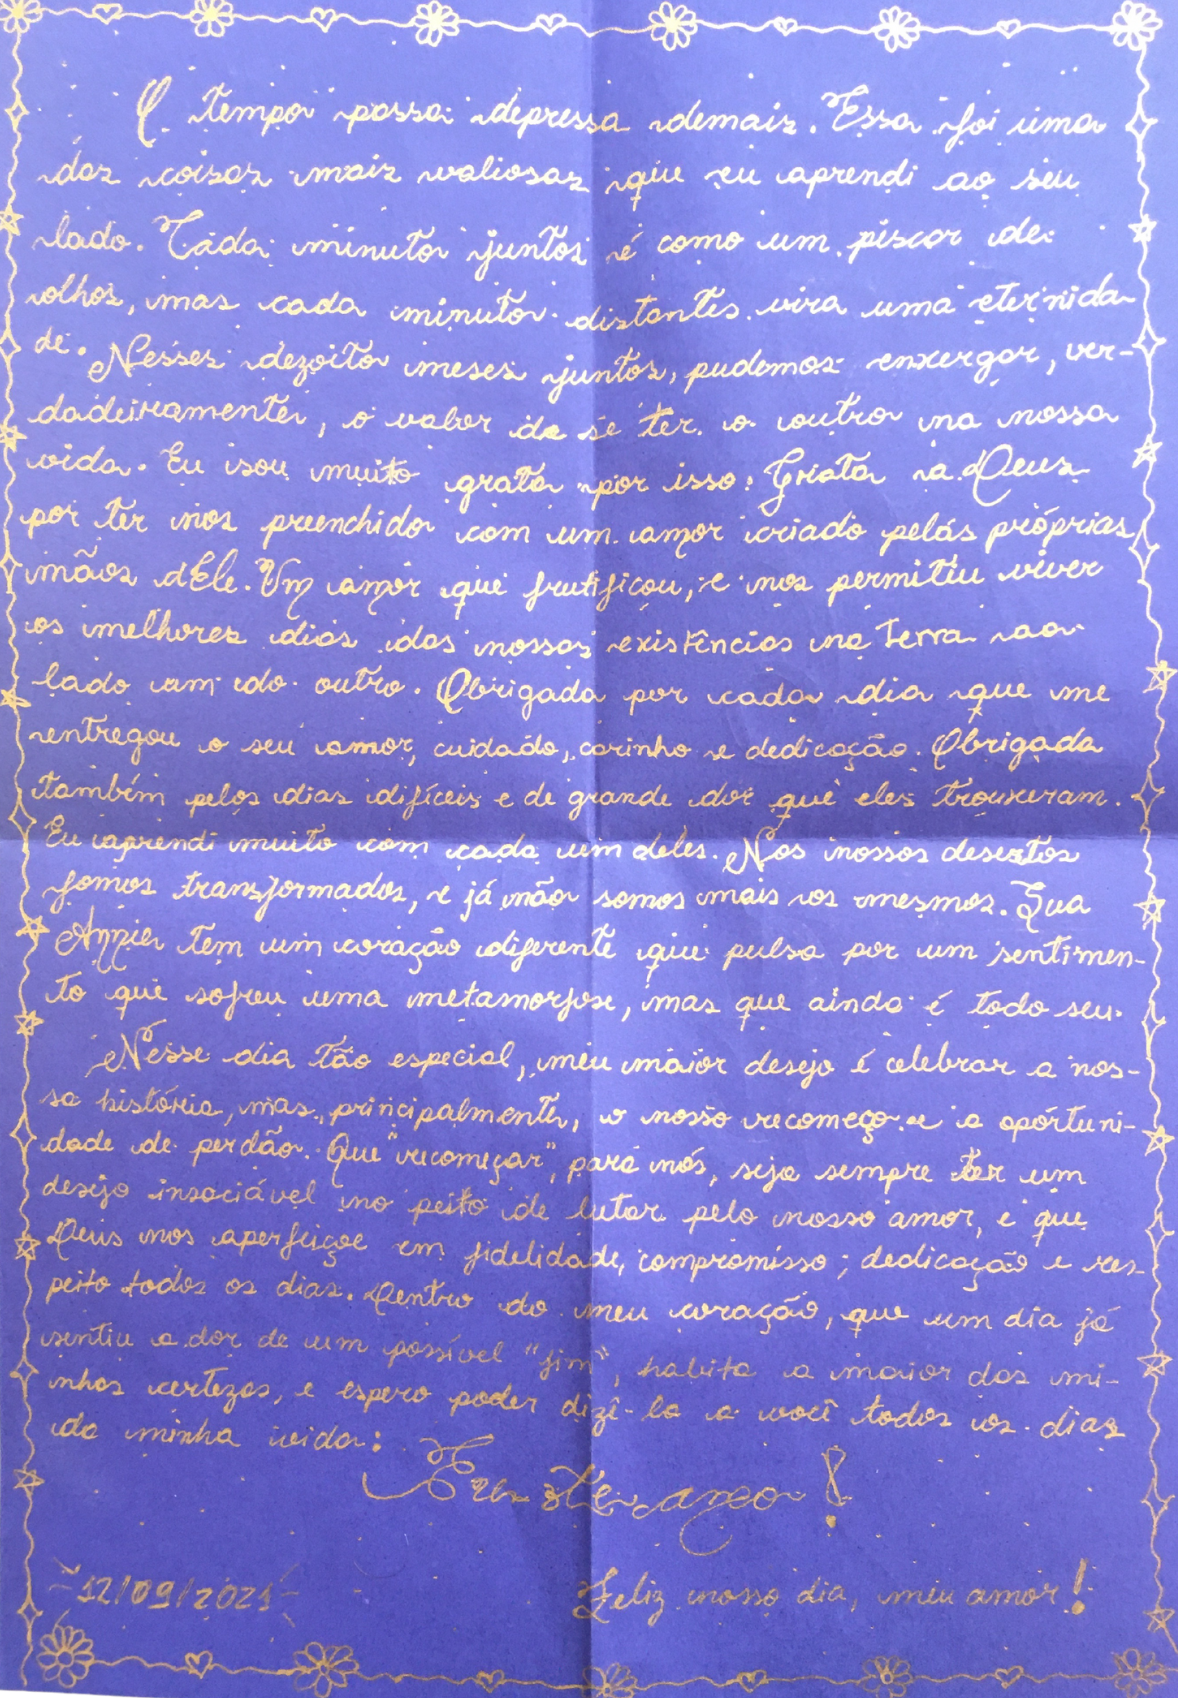 O tempo passa depressa demais. Essa foi uma
das coisas mais valiosas que eu aprendi ao seu
lado. Cada minuto juntos é como um piscar de
olhos, mas cada minuto distantes vira uma eternida
de. Nesses dezoito meses juntos, pudemos enxergar, ver-
dadeiramente, o valor de se ter o outro na nossa
vida. Eu sou muito grata por isso. Grata a Deus
por ter nos preenchido com um amor criado pelas próprias
mãos dEle. Um amor que frutificou, e nos permitiu viver
os melhores dias das nossas existências na terra ao
lado um do outro. Obrigada por cada dia que me
entregou o seu amor, cuidado, carinho e dedicação. Obrigada
também pelos dias difíceis e de grande dor que eles trouxeram.
Eu aprendi muito com cada um deles. Nos nossos desertos
fomos transformados, e já não somos mais os mesmos. Sua
Annie tem um coração diferente que pulsa por um sentimen-
to que sofreu uma metamorfose, mas que ainda é todo seu.
Nesse dia tão especial, meu maior desejo é celebrar a nos-
sa história, mas, principalmente, o nosso recomeço e a oportuni-
dade de perdão. Que "recomeçar", para nós, seja sempre ter um
desejo insaciável no peito de lutar pelo nosso amor, e que
Deus nos aperfeiçoe em fidelidade, compromisso, dedicação e res-
peito todos os dias. Dentro do meu coração, que um dia já
sentiu a dor de um possível "fim", habita a maior das mi-
nhas certezas, e espero poder dizê-la a você todos os dias
da minha vida:
Eu te amo!
~12/09/2021~
Feliz nosso dia, meu amor!